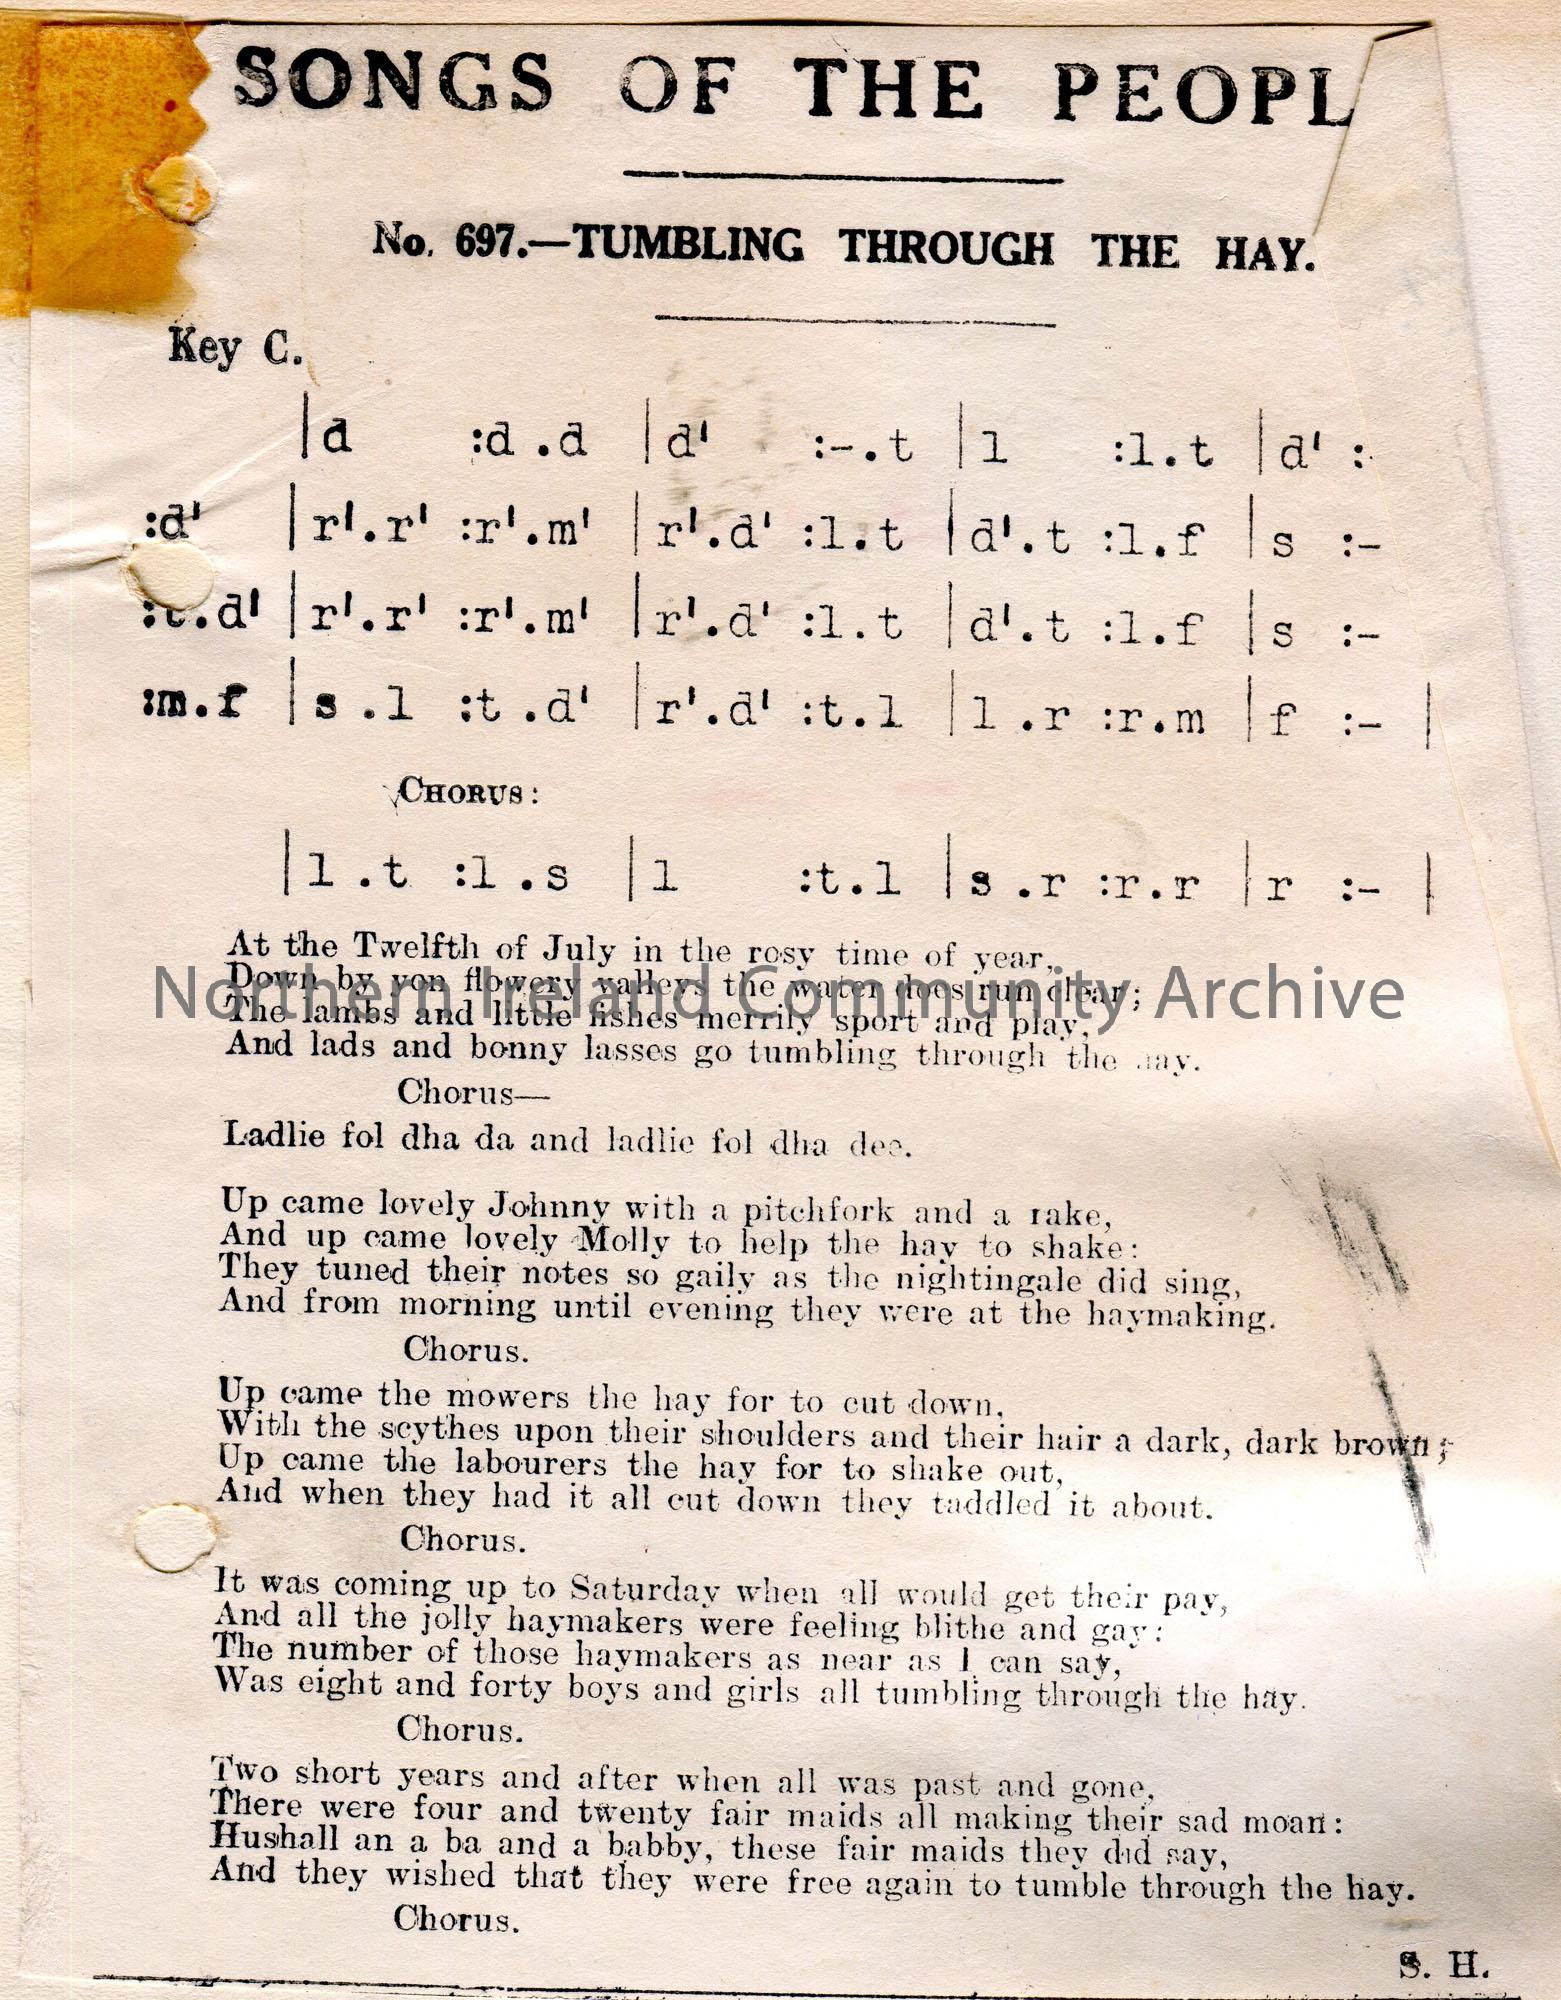 SONGS OF THE PEOPL
No. 697.—TUMBLING THROUGH THE HAY.
Key C.
|d :d .d |d' :-.t |l :l.t |d' :
:d' |r'.r' :r'.m' |r'.d' :l.t |d'.t :l.f |s :-
:t.d' |r'.r' :r'.m' |r'.d' :l.t |d'.t :l.f |s :-
:m.f |s .l :t .d' |r'.d' :t.l |l .r :r.m |f :- |
CHORUS:
|l .t :l .s |l :t.l |s .r :r.r |r :- |
At the Twelfth of July in the rosy time of year,
Down by yon flowery valleys the water does run clear;
Northern Ireland Community Archive
The lambs and little fishes merrily sport and play,
And lads and bonny lasses go tumbling through the hay.
Chorus—
Ladlie fol dha da and ladlie fol dha dee.
Up came lovely Johnny with a pitchfork and a rake,
And up came lovely Molly to help the hay to shake:
They tuned their notes so gaily as the nightingale did sing,
And from morning until evening they were at the haymaking.
Chorus.
Up came the mowers the hay for to cut down,
With the scythes upon their shoulders and their hair a dark, dark brown;
Up came the labourers the hay for to shake out,
And when they had it all cut down they taddled it about.
Chorus.
It was coming up to Saturday when all would get their pay,
And all the jolly haymakers were feeling blithe and gay:
The number of those haymakers as near as I can say,
Was eight and forty boys and girls all tumbling through the hay.
Chorus.
Two short years and after when all was past and gone,
There were four and twenty fair maids all making their sad moan:
Hushall an a ba and a babby, these fair maids they did say,
And they wished that they were free again to tumble through the hay.
Chorus.
S. H.